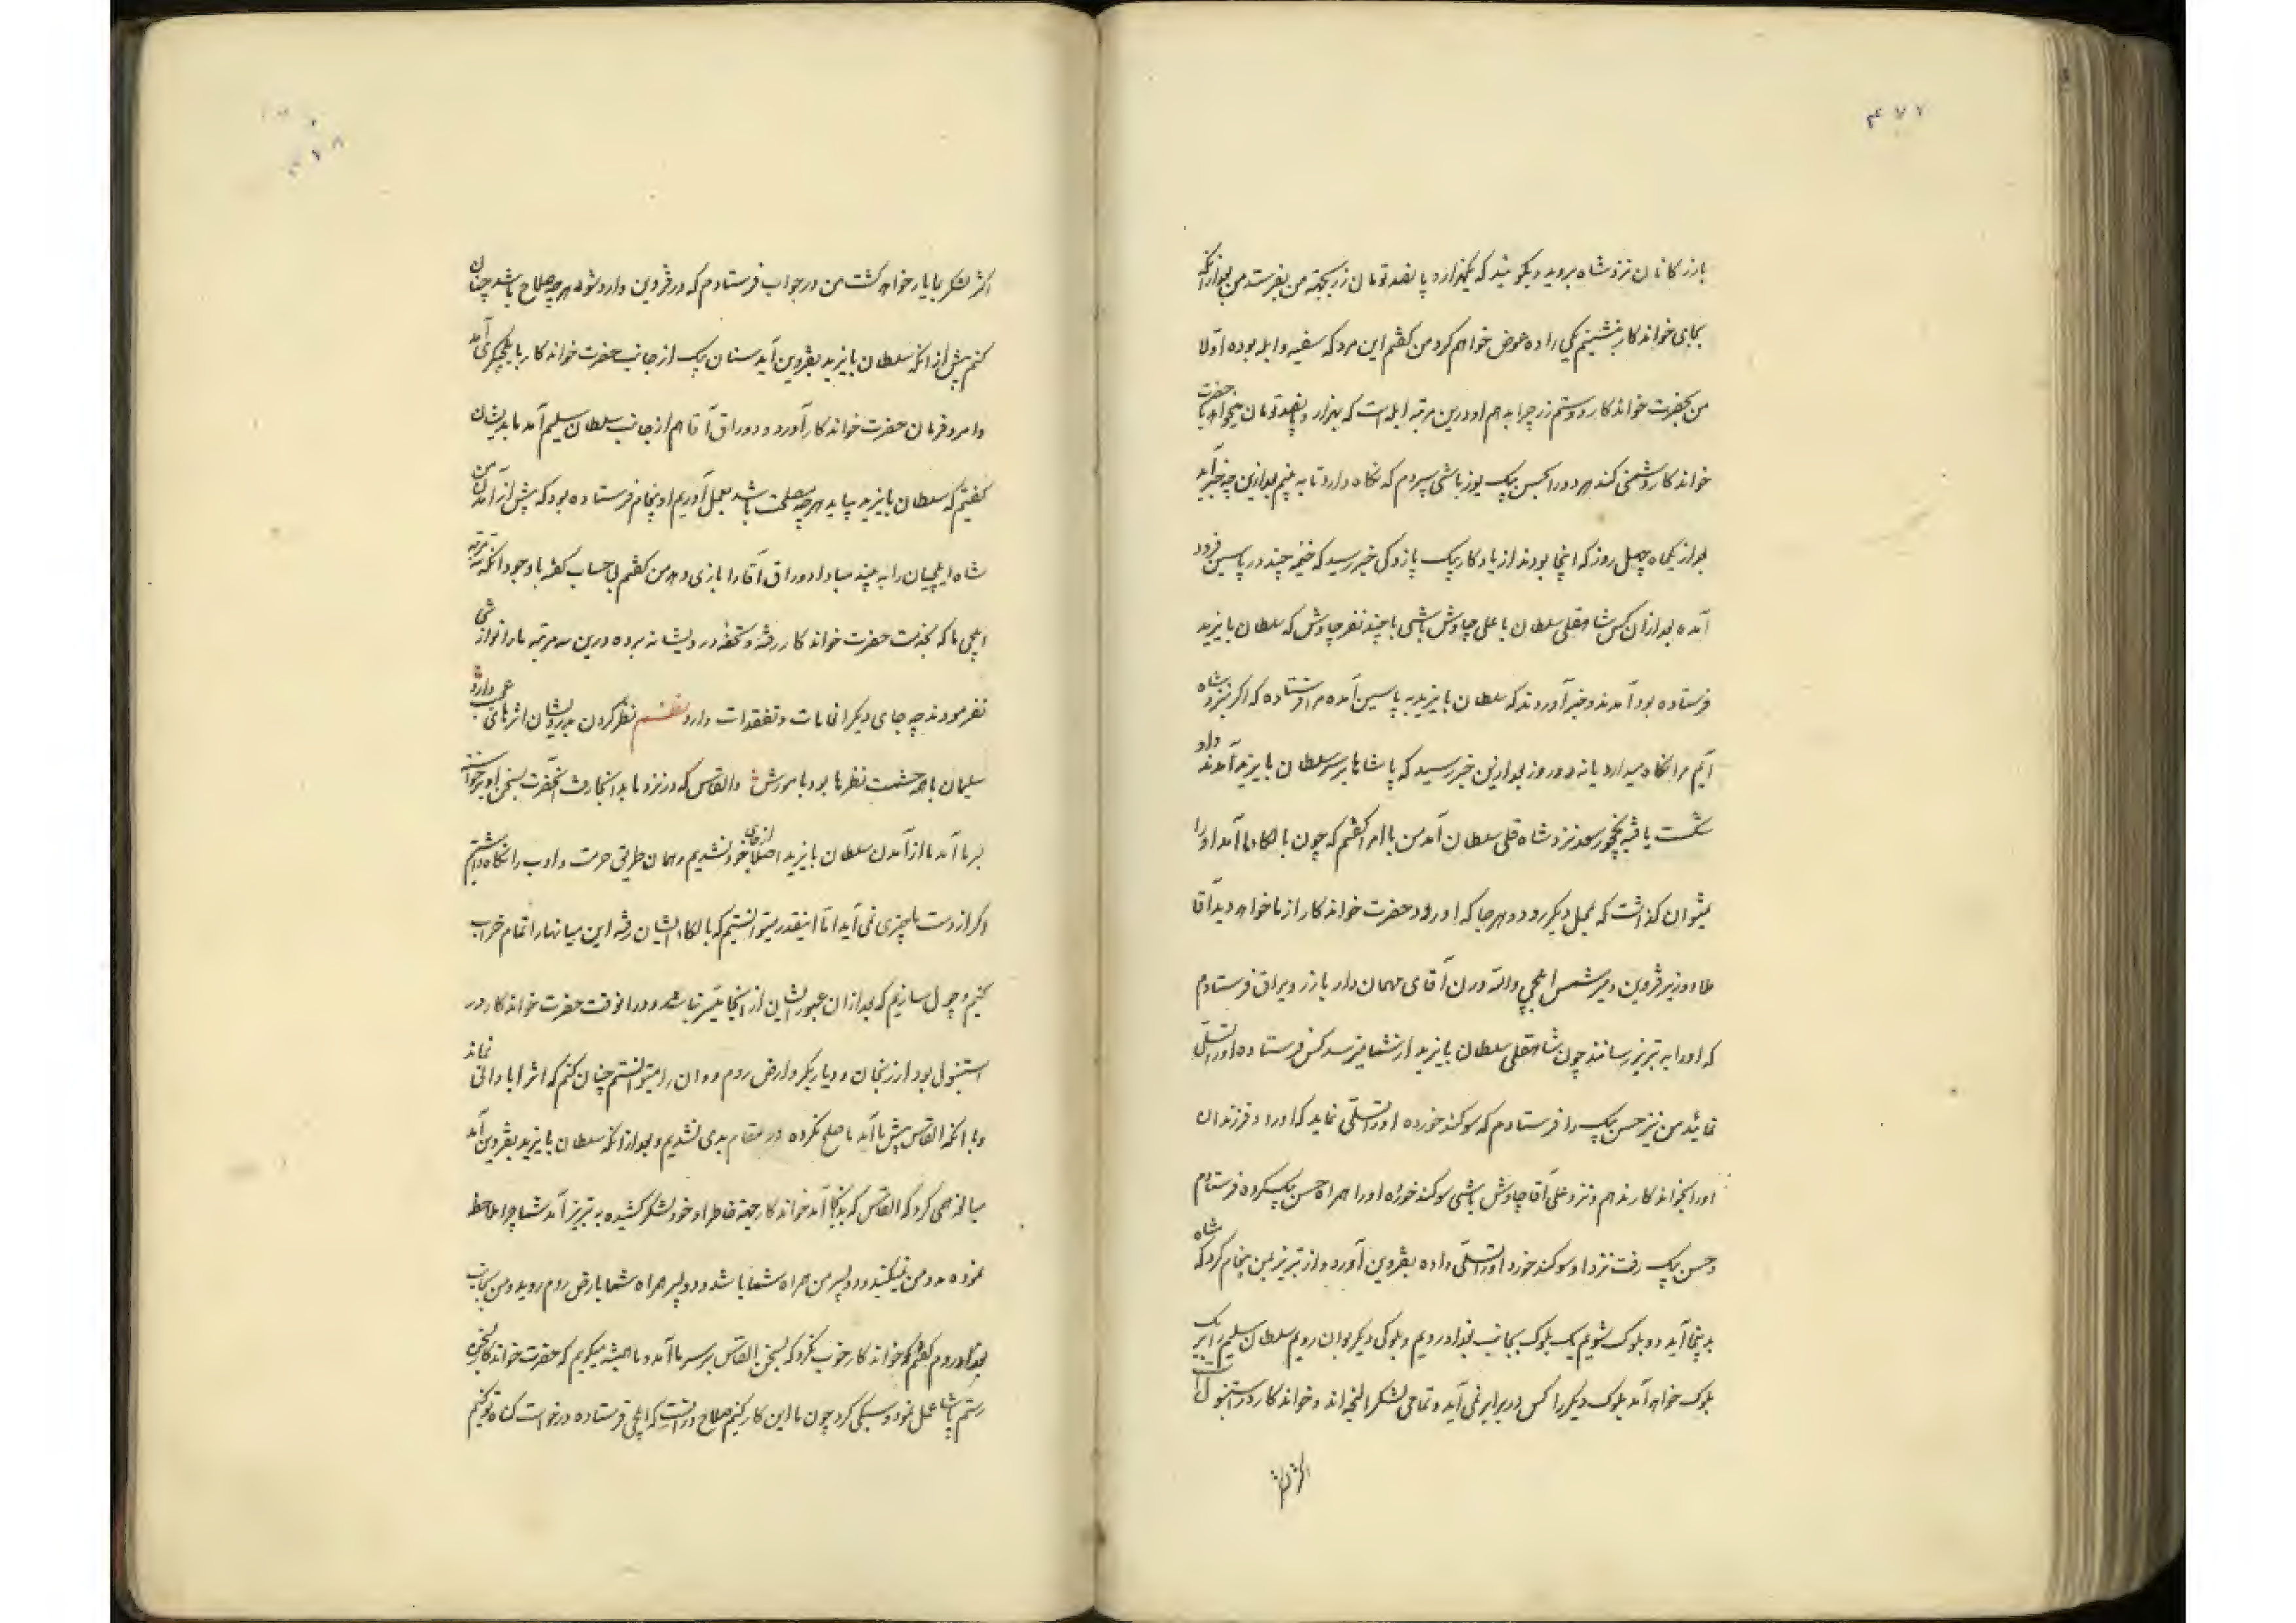 ۴۷۷
بازرکانان نزد شاه بروید و بکوئید که یکهزار و پانصد تومان زر بجهته من بفرستد من بعد از آنکه
بجای خواندکار بنشینم یکی را ده عوض خواهم کرد من کفتم این مردکه سفیه و ابله بوده اولا
من بحضرت خواندکار دوستم زر چرا بدهم او درین مرتبه ابله است که بهزار و پانصد تومان میخواهد با حضرت
خواندکار دشمنی کند هر دو را بحسن بیک یوزباشی سپردم که نکاه دارد تا به بینم بعد ازین چه خبر آید
بعد از یکماه چهل روز که اینجا بودند از یادکار بیک پازوکی خبر رسید که خیمه چند در پاسین فرود
آمده بعد از آن کس شاهقلی سلطان با علی چاوش باشی با چند نفر چاوش که سلطان بایزید
فرستاده بود آمدند و خبر آوردند که سلطان بایزید به پاسین آمده مرا فرستاده که اکر نزد شاه
آیم مرا نکاه میدارد یا نه دو روز بعد ازین خبر رسید که پاشاها بر سر سلطان بایزید آمدند داد
شکست یافته بچخور سعد نزد شاه قلی سلطان آمد من با امرا کفتم که چون بالکاء ما آمد او را
نمیتوان کذاشت که بمحل دیکر رود و هر جا که او رود حضرت خواندکار از ما خواهد دید آقا
ملا وزیر قزوین و میر شمس ایلچی و الله ورن آقای مهمان دار با زر و یراق فرستادم
که او را به تبریز رسانند چون شاهقلی سلطان بایزید از شما میترسد کس فرستاده او را تسلی
نمائید من نیز حسن بیک را فرستادم که سوکند خورده او را تسلی نماید که او را و فرزندان
او را بخواندکار ندهم و نزد علی آقا چاوش باشی سوکند خورده او را همراه حسن بیک کرده فرستادم
و حسن بیک رفت نزد او سوکند خورد او را تسلی داده بقزوین آورد و از تبریز بمن پیغام کرد که شاه
بدینجا آید دو بلوک شویم یک بلوک بجانب بغداد رویم و بلوکی دیکر بوان رویم سلطان سلیم برابر یک
بلوک خواهد آمد بلوک دیکر را کس در برابر نمی آید و تمامی لشکر و خواندکار در استنبول است
۴۷۸
اکثر لشکر بما یار خواهد کشت من در جواب فرستادم که در قزوین وارد شود هر چه صلاح باشد چنان
کنم پیش از آنکه سلطان بایزید بقزوین آید سنان بیک از جانب حضرت خواندکار بایلچیکری آمد
و امر و فرمان حضرت خواندکار آورد و دوراق آقا هم از جانب سلطان سلیم آمد ما بدیشان
کفتیم که سلطان بایزید بیاید هر چه مصلحت باشد بعمل آوریم او پیغام فرستاده بود که پیش از آمدن من
شاه ایلچیان را به بیند مبادا دوراق آقا را بازی دهد من کفتم بی حساب کفته با وجود آنکه سه مرتبه
ایلچی ما که بخدمت حضرت خواندکار رفته و تحفه درویشانه برده درین سه مرتبه ما را نوازشی
نفرمودند چه جای دیکر انعامات و تفقدات دارد نظم نظر کردن بدرویشان اثرهای عجب دارد
سلیمان با همه حشمت نظرها بود با مورش و القاس که در نزد ما بدانجا رفت آنحضرت بسخن او برخواسته
بر ما آمد ما از آمدن سلطان بایزید اصلا از جای خود نشدیم و همان طریق حرمت و ادب را نکاه داشتیم
اکر از دست ما چیزی نمی آید اما اینقدر میتوانستیم که بالکاء ایشان رفته این میانها را تمام خراب
کنیم و چول سازیم که بعد از آن عبور ایشان از آنجا میسر نباشد و در آنوقت حضرت خواندکار در
استنبول بود ارزنجان و دیاربکر و ارض روم و وان را میتوانستم چنان کنم که اثر آبادانی نماند
و با آنکه القاس پیش ما آمد ما صلح نکرده در مقام بدی نشدیم و بعد از آنکه سلطان بایزید بقزوین آمد
مبالغه همی کرد که القاس که بدینجا آمد خواندکار جهة خاطر او خود لشکر کشیده به تبریز آمد شما چرا ملاحظه
نموده مدد من نمیکنید و دو پسر من همراه شما باشد و دو پسر همراه شما بارض روم روید و من بجانب
بغداد روم کفتم که خواندکار خوب نکرد که بسخن القاس بر سر ما آمد و ما همیشه میکوییم که حضرت خواندکار بسخن
رستم پاشا عمل نمود و سبکی کرد چون ما این کار کنیم صلاح در آنست که ایلچی فرستاده درخواست کناه تو کنیم